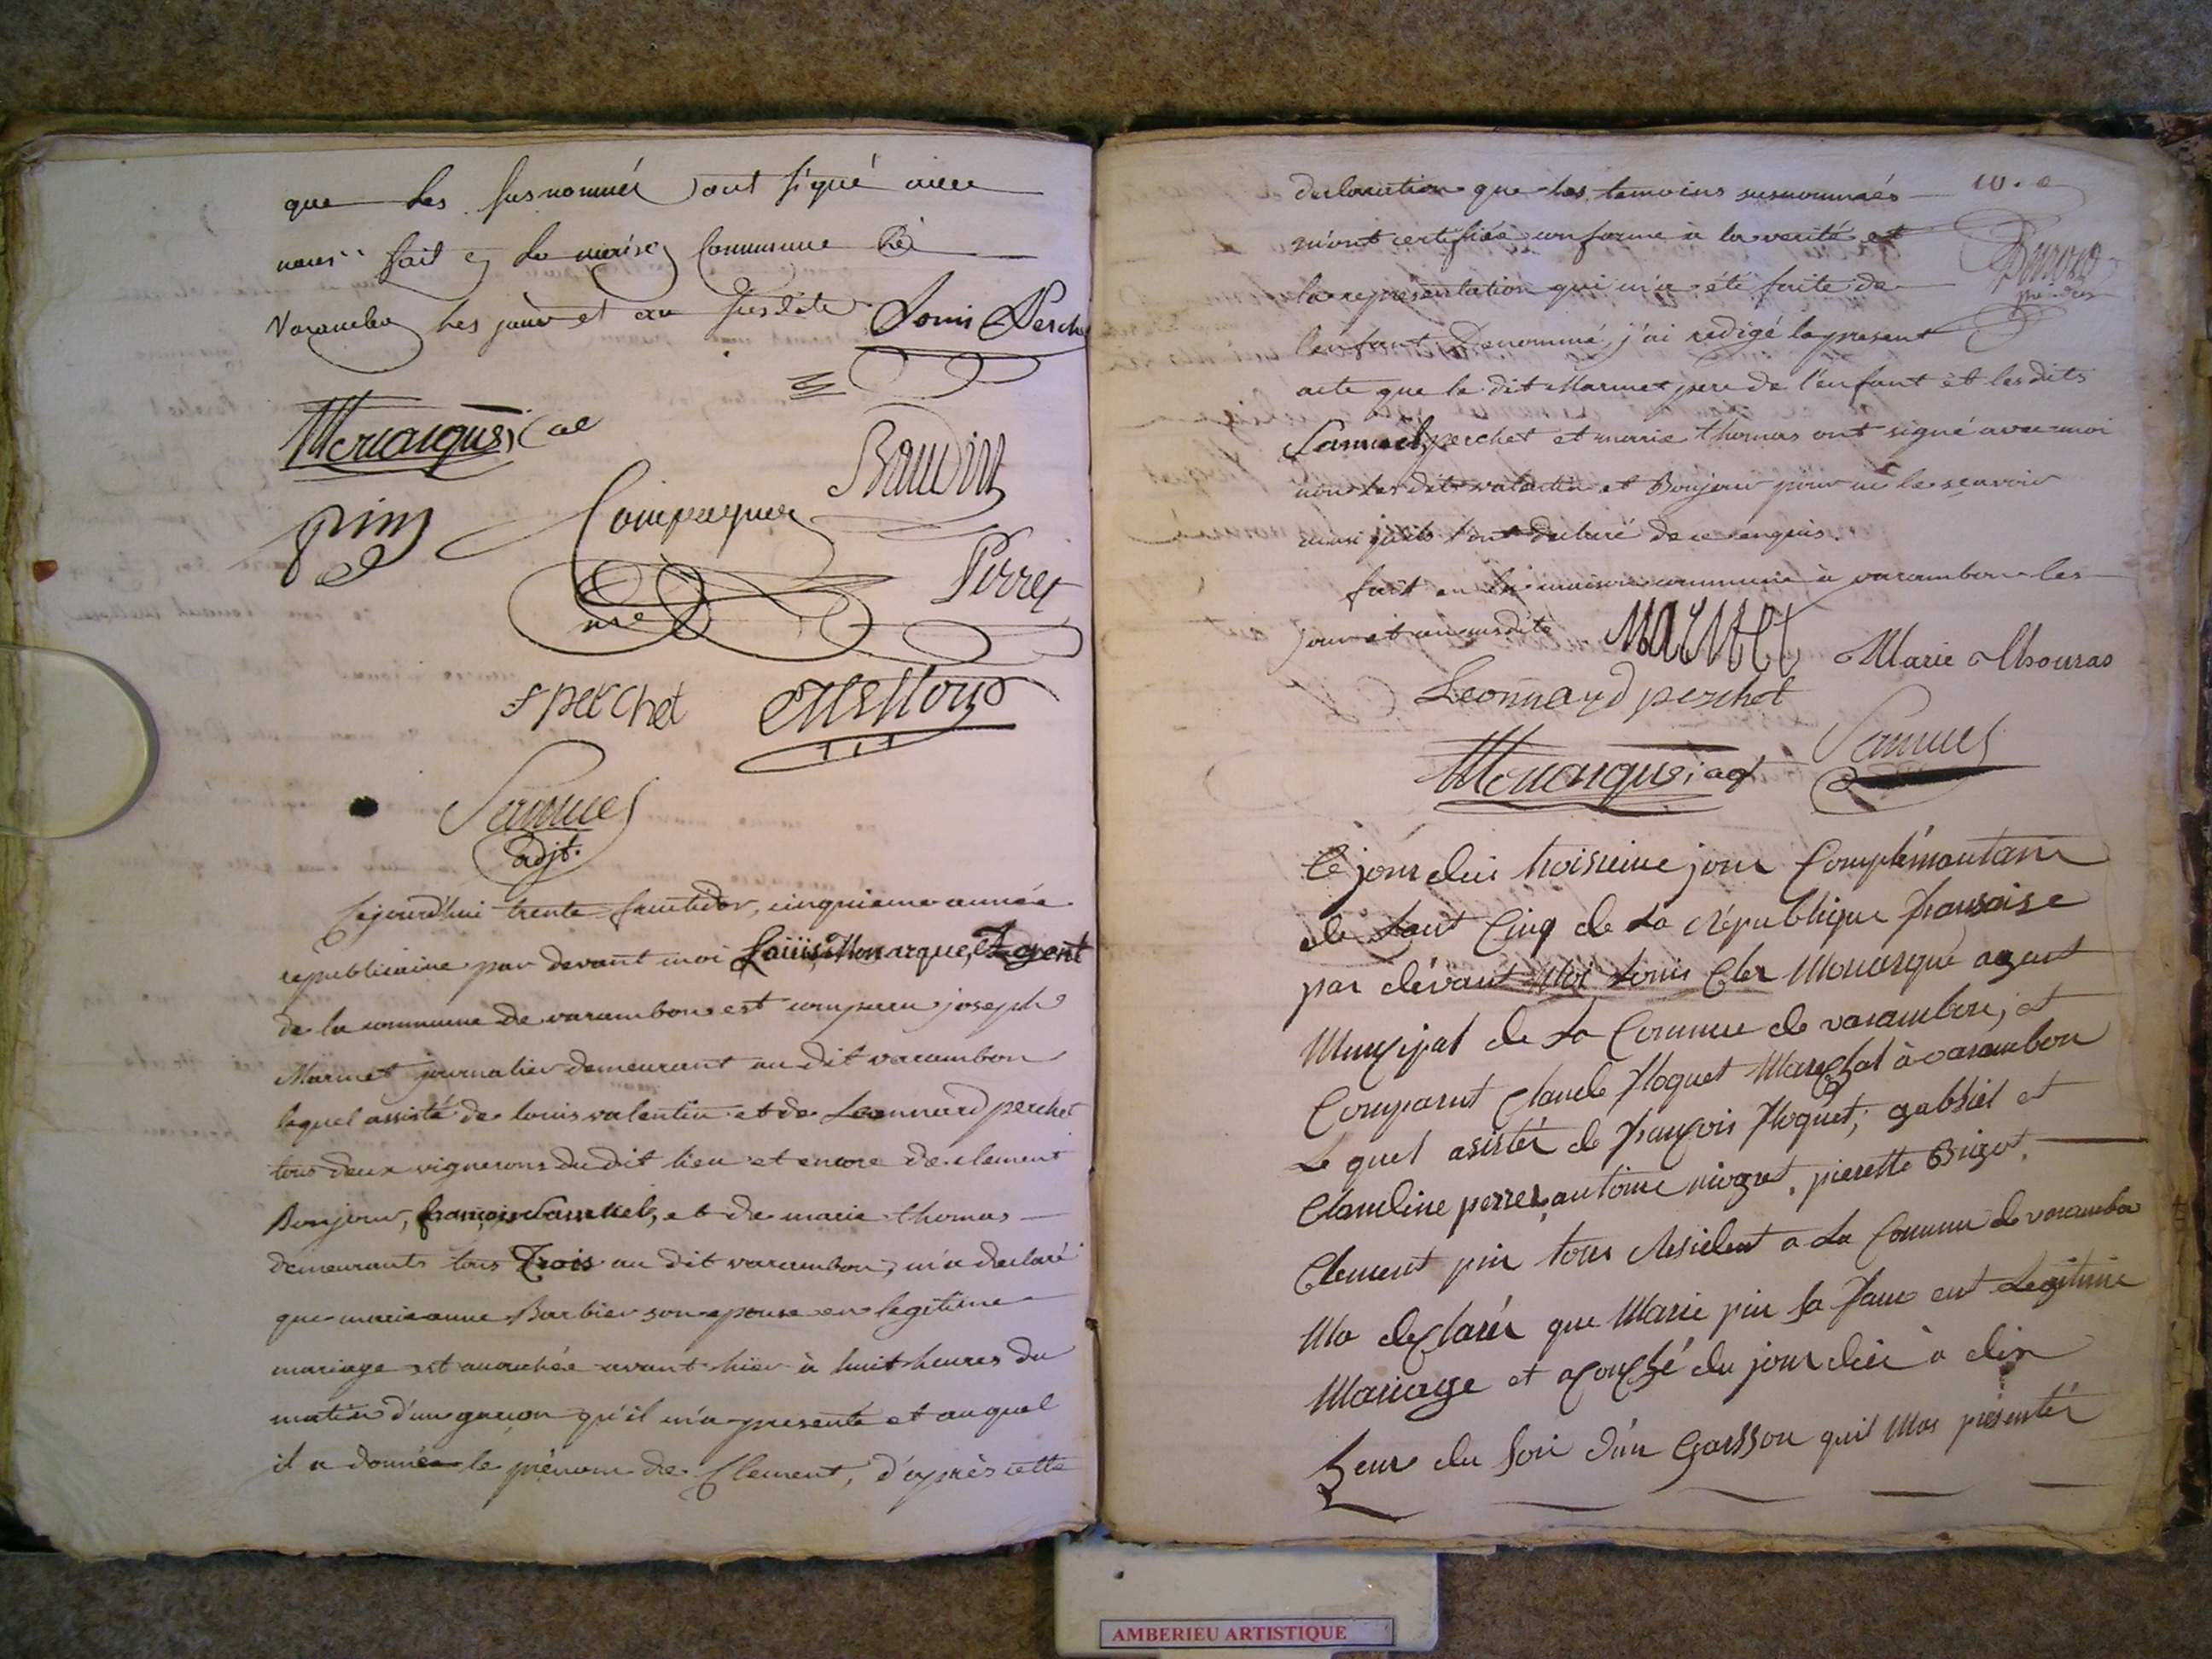 que les susnommés ont signé avec
nous fait en la maison Commune de
Varambon les jour et an susdits Louis Perchet
Monarque
pin
Compagnon
Baudin
Pirret
perchet
Samuel
adjt.
Cejourd'hui trente fructidor, cinquieme année
republicaine par devant moi Louis Monarque, Agent
de la commune de varambon est comparu joseph
Marmet journalier demeurant au dit varambon
lequel assisté de louis valentin et de Leonnard perchet
tous deux vignerons du dit lieu et encore de clement
Bonjour, françois Samuel, et de marie thomas
demeurants tous Trois au dit varambon, m'a declaré
que marieanne Barbier son epouse en legitime
mariage est accouchée avant hier à huit heures du
matin d'un garçon qu'il m'a presenté et auquel
il a donnée le prénom de Clement, d'après cette
10.e
declaration que les temoins susnommés
m'ont certifiée conforme à la verité et
la representation qui m'a été faite de
l'enfant denommé, j'ai redigé le present
acte que le dit Marmet pere de l'enfant et lesdits
Samuel, perchet et marie thomas ont signé avec moi
non lesdits valentin et Bonjour pour ne le sçavoir
ainsi qu'ils l'ont declaré de ce enquis.
fait en la maison commune à varambon les
jour et an susdits MARMET Marie thomas
Leonnard perchet
Monarque agt Samuel
Ce jourdui troisieme jour Complémantaire
de Lant Cinq de La République française
par dévant Moi Louis Cler Monarque agent
Municipal de La Commune de varambon, et
Comparut Claude floquet Marechal à varambon
Le quel asistér de françois floquet, gabriel et
Claudine perret, antoine niogret, pierette Brigot,
Clement pin tous Resident a La Commune de varambon
Ma declarér que Marie pin sa fame ent Legitime
Mariage et acouché du jourdui à dix
heur du soir d'un Garsson quil Mas présentér
AMBERIEU ARTISTIQUE